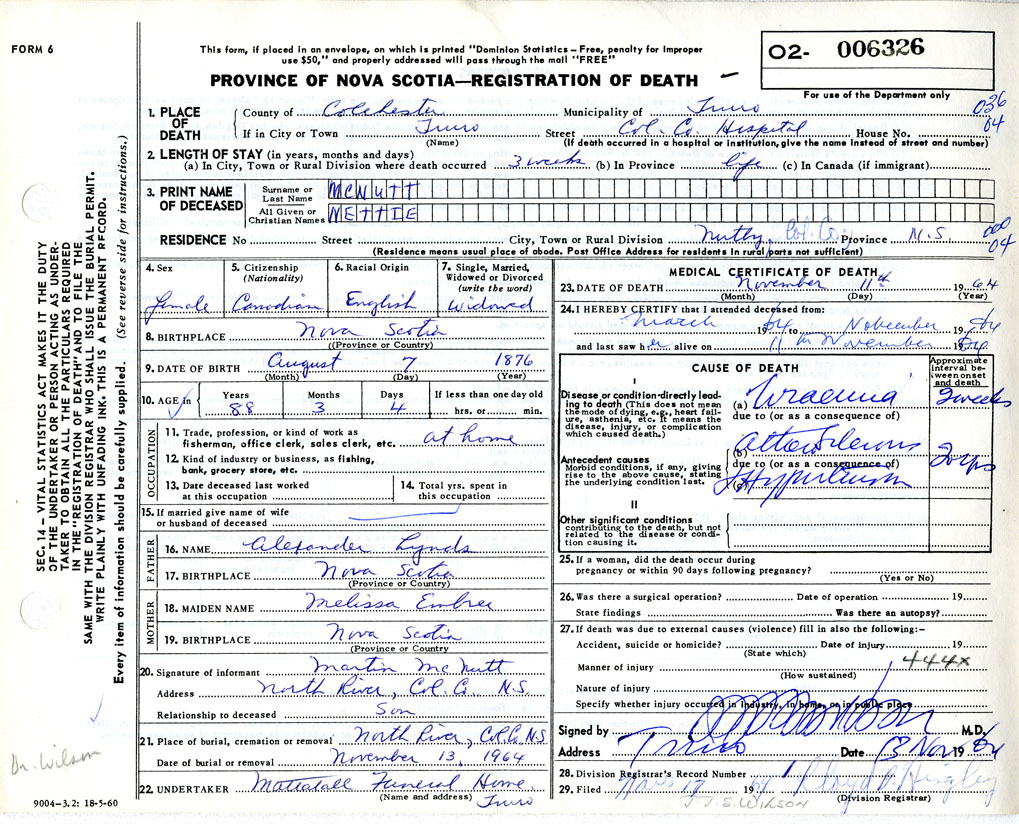 FORM 6
This form, if placed in an envelope, on which is printed "Dominion Statistics – Free, penalty for improper
use $50," and properly addressed will pass through the mail "FREE"
PROVINCE OF NOVA SCOTIA—REGISTRATION OF DEATH
O2- 006326
For use of the Department only
1. PLACE OF DEATH
County of Colchester Municipality of Truro 036
If in City or Town Truro Street Col. Co. Hospital House No. 04
(Name) (If death occurred in a hospital or institution, give the name instead of street and number)
2. LENGTH OF STAY (in years, months and days)
(a) In City, Town or Rural Division where death occurred 3 weeks (b) In Province life (c) In Canada (if immigrant)
3. PRINT NAME OF DECEASED
Surname or Last Name MCNUTT
All Given or Christian Names NETTIE
RESIDENCE No Street City, Town or Rural Division Nuttby, Col. Co. Province N.S. 04
(Residence means usual place of abode. Post Office Address for residents in rural parts not sufficient)
4. Sex
female
5. Citizenship (Nationality)
Canadian
6. Racial Origin
English
7. Single, Married, Widowed or Divorced (write the word)
Widowed
8. BIRTHPLACE Nova Scotia
((Province or Country)
9. DATE OF BIRTH August 7 1876
(Month) (Day) (Year)
10. AGE in Years Months Days If less than one day old
88 3 4 hrs. or min.
OCCUPATION
11. Trade, profession, or kind of work as
fisherman, office clerk, sales clerk, etc. at home
12. Kind of industry or business, as fishing,
bank, grocery store, etc.
13. Date deceased last worked
at this occupation
14. Total yrs. spent in
this occupation
15. If married give name of wife
or husband of deceased
FATHER
16. NAME Alexander Lynds
17. BIRTHPLACE Nova Scotia
(Province or Country)
MOTHER
18. MAIDEN NAME Melissa Embree
19. BIRTHPLACE Nova Scotia
(Province or Country
20. Signature of informant Martin McNutt
Address North River, Col. Co. N.S.
Relationship to deceased Son
21. Place of burial, cremation or removal North River, Col. Co. N.S
Date of burial or removal November 13, 1964
22. UNDERTAKER Mattatall Funeral Home
(Name and address) Truro
MEDICAL CERTIFICATE OF DEATH
23. DATE OF DEATH November 11th 1964
(Month) (Day) (Year)
24. I HEREBY CERTIFY that I attended deceased from:
March 1964 to November 1964
and last saw her alive on 11 November 1964
CAUSE OF DEATH
Approximate interval between onset and death
I
Disease or condition directly leading to death (This does not mean the mode of dying, e.g., heart failure, asthenia, etc. It means the disease, injury, or complication which caused death.)
(a) Uraemia 2 weeks
due to (or as a consequence of)
Antecedent causes
Morbid conditions, if any, giving rise to the above cause, stating the underlying condition last.
(b)
due to (or as a consequence of)
(c) Hypertension
II
Other significant conditions
contributing to the death, but not related to the disease or condition causing it.
25. If a woman, did the death occur during
pregnancy or within 90 days following pregnancy?
(Yes or No)
26. Was there a surgical operation? Date of operation 19
State findings Was there an autopsy?
27. If death was due to external causes (violence) fill in also the following:–
Accident, suicide or homicide? Date of injury 19
(State which)
444X
Manner of injury
(How sustained)
Nature of injury
Specify whether injury occurred in industry, in home, or in public place
Signed by M.D.
Address Truro Date 13 Nov 1964
28. Division Registrar's Record Number
29. Filed Nov 17 1964
(Division Registrar)
J.J.S. WILSON
SEC. 14 – VITAL STATISTICS ACT MAKES IT THE DUTY
OF THE UNDERTAKER OR PERSON ACTING AS UNDER-
TAKER TO OBTAIN ALL THE PARTICULARS REQUIRED
IN THE "REGISTRATION OF DEATH" AND TO FILE THE
SAME WITH THE DIVISION REGISTRAR WHO SHALL ISSUE THE BURIAL PERMIT.
WRITE PLAINLY WITH UNFADING INK. THIS IS A PERMANENT RECORD.
Every item of information should be carefully supplied. (See reverse side for instructions.)
Dr. Wilson
9004–3.2: 18-5-60